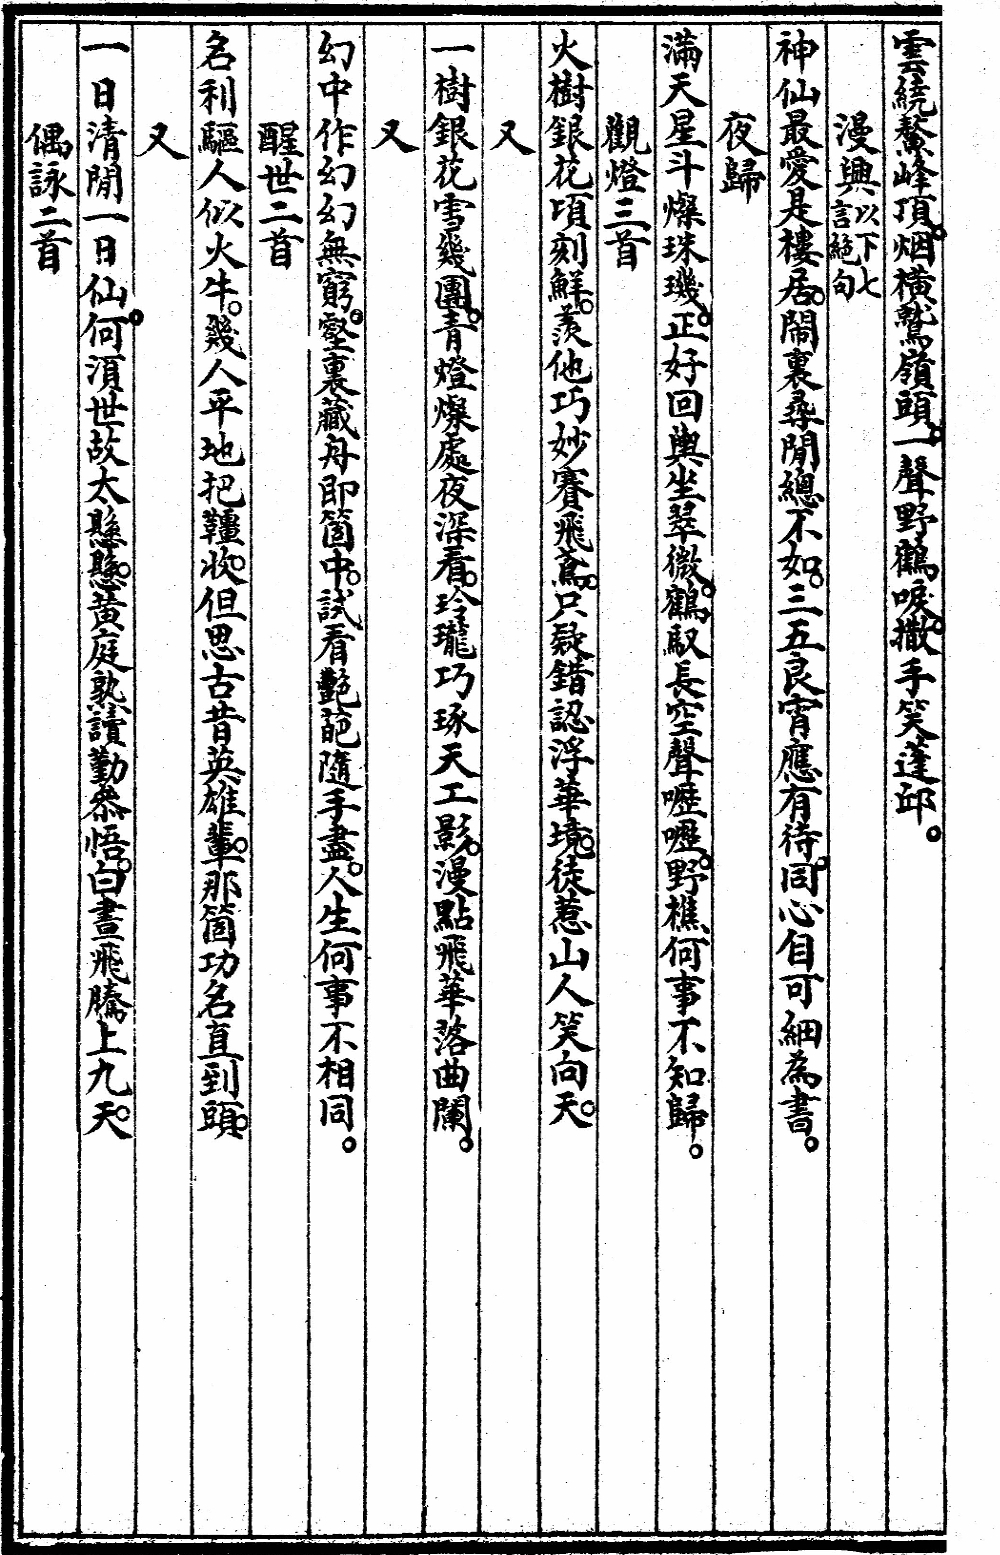 雲繞鰲峰頂。烟橫鷲嶺頭。一聲野鶴唳。撒手笑蓬邱。
漫興以下七言絕句
神仙最愛是樓居。鬧裏尋閒總不如。三五良宵應有待。同心自可細為書。
夜歸
滿天星斗燦珠璣。正好回輿坐翠微。鶴馭長空聲嚦嚦。野樵何事不知歸。
觀燈三首
火樹銀花頃刻鮮。羨他巧妙賽飛鳶。只疑錯認浮華境。徒惹山人笑向天。
又
一樹銀花雪幾團。青燈燦處夜深看。玲瓏巧琢天工影。漫點飛華落曲闌。
又
幻中作幻幻無窮。壑裏藏舟即箇中。試看艷葩隨手盡。人生何事不相同。
醒世二首
名利驅人似火牛。幾人平地把韁收。但思古昔英雄輩。那箇功名直到頭。
又
一日清閒一日仙。何須世故太懸懸。黃庭孰讀勤叅悟。白晝飛騰上九天。
偶詠二首